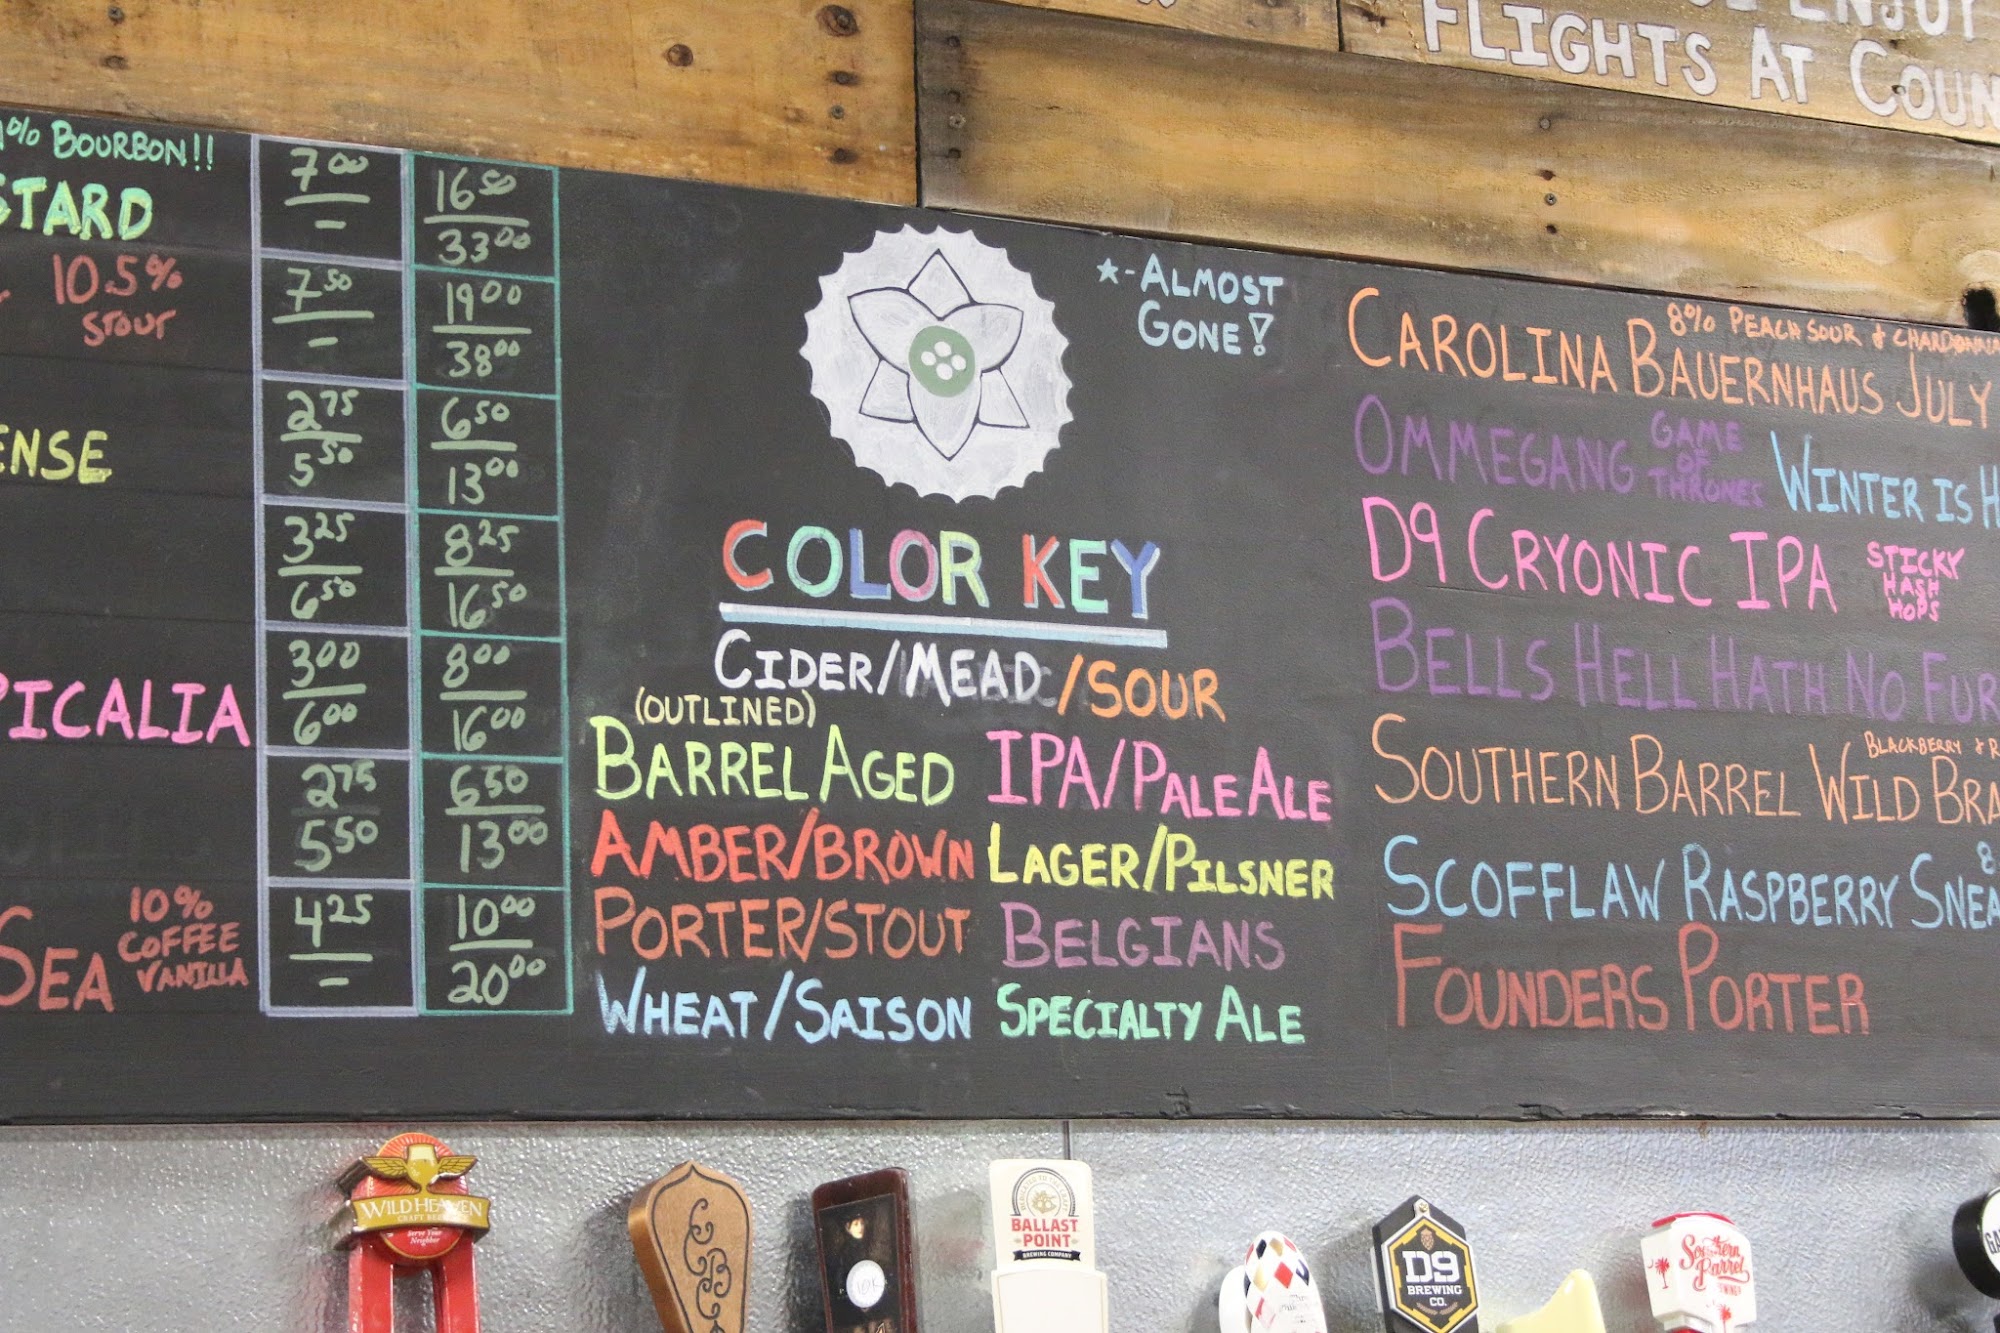 ENJOY
FLIGHTS AT
% BOURBON!!
10.5%
STOUT
10%
COFFEE
VANILLA
SEA
7.00
-
16.50
33.00
7.50
-
19.00
38.00
2.75
5.50
6.50
13.00
3.25
6.50
8.25
16.50
3.00
6.00
8.00
16.00
2.75
5.50
6.50
13.00
4.25
-
10.00
20.00
★-ALMOST
GONE!
COLOR KEY
CIDER/MEAD/SOUR
(OUTLINED)
BARREL AGED
IPA/PALE ALE
AMBER/BROWN
LAGER/PILSNER
PORTER/STOUT
BELGIANS
WHEAT/SAISON
SPECIALTY ALE
8% PEACH SOUR &
CAROLINA BAUERNHAUS JULY
OMMEGANG GAME OF THRONES WINTER IS
D9 CRYONIC IPA STICKY HASH HOPS
BELLS HELL HATH NO
BLACKBERRY &
SOUTHERN BARREL WILD
SCOFFLAW RASPBERRY
FOUNDERS PORTER
WILD HEAVEN
CRAFT
Serve Your
Neighbor
BALLAST
POINT
BREWING COMPANY
D9
BREWING
CO.
Southern
Barrel